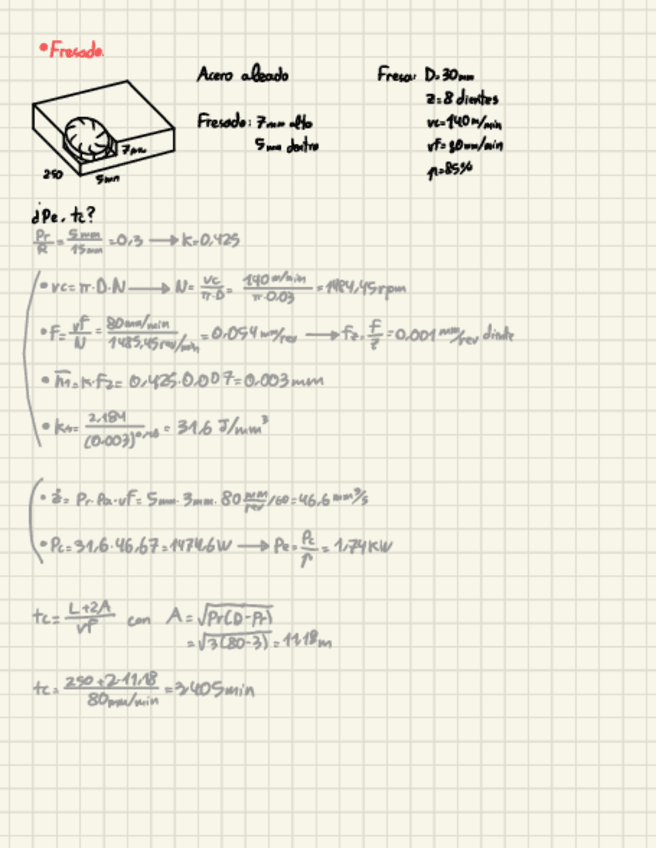 • Fresado.
Acero aleado
Fresado: 7mm alto
5mm dentro
Fresa: D=30mm
z=8 dientes
vc=140m/min
vf=80mm/min
η=85%
7mm
250
5mm
¿Pe, tc?
Pr/R = 5mm/15mm = 0,3 → k=0,425
• vc=π·D·N → N= vc/π·D = 140m/min/π·0.03 = 1484,45rpm
• F= vf/N = 80mm/min/1485,45rev/min = 0,054mm/rev → fz= f/z =0,001mm/rev diente
• m̅=k·Fz= 0,425·0.007=0.003mm
• ks= 2,184/(0.003) = 31,6 J/mm³
• ż= Pr·Pa·vf= 5mm·3mm·80mm/rev/60=46,6mm³/s
• Pc=31,6·46,67=1474,6W → Pe= Pc/η = 1,74KW
tc= L+2A/vf con A=√Pr(D-Pr)
=√3(80-3)=11,18m
tc= 250+2·11,18/80mm/min =3,405min